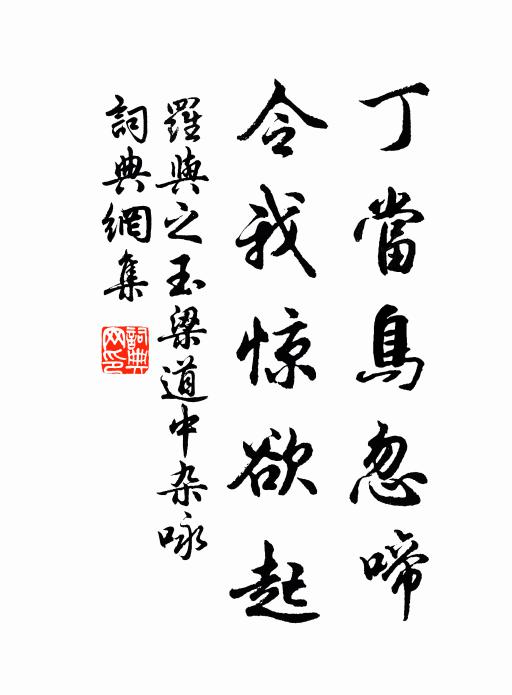 丁當鳥忽啼
令我惊欲起
羅與之玉梁道中杂咏
詞典網集
詞典網印